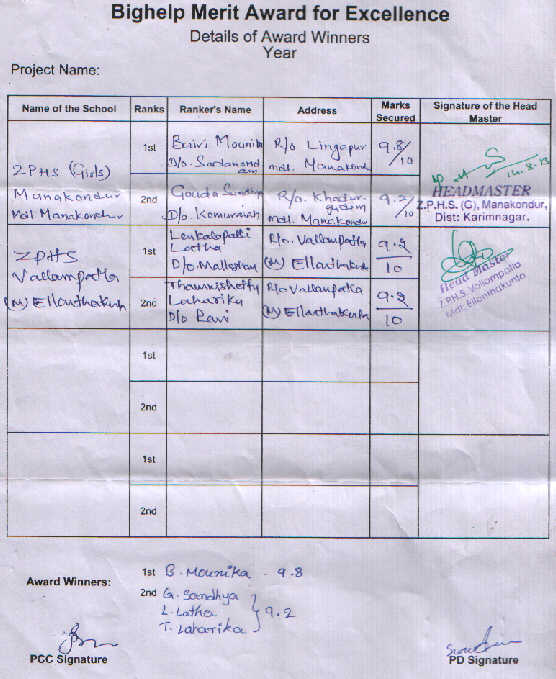 Bighelp Merit Award for Excellence
Details of Award Winners
Year
Project Name:
Name of the School Ranks Ranker's Name Address Marks Secured Signature of the Head Master
ZPHS (Girls)
Manakondur
Mdl. Manakondur
1st Bairi Mounika R/o Lingapur 9.8/10
D/o. Sardanandam mdl. Manakond
2nd Gouda Sandhya R/o. Khadar-gudem 9.2/10
D/o. Komuraiah Mdl. Manakondur
14.8.13
HEADMASTER
Z.P.H.S. (G), Manakondur,
Dist: Karimnagar.
ZPHS
Vallampatla
(M) Ellanthakunta
1st Lenkalapalli R/o. Vallampatla 9.2/10
Latha
D/o. Mallesham (M) Ellanthakunta
2nd Thaunishetty R/o Vallampatla 9.2/10
Laharika
D/o Ravi (M) Ellanthakunta
Head Master
Z.P.H.S. Vallampatla
Mdl. Ellanthakunta
1st
2nd
1st
2nd
Award Winners:
1st B. Mounika - 9.8
2nd G. Sandhya
L. Latha 9.2
T. Laharika
PCC Signature
PD Signature